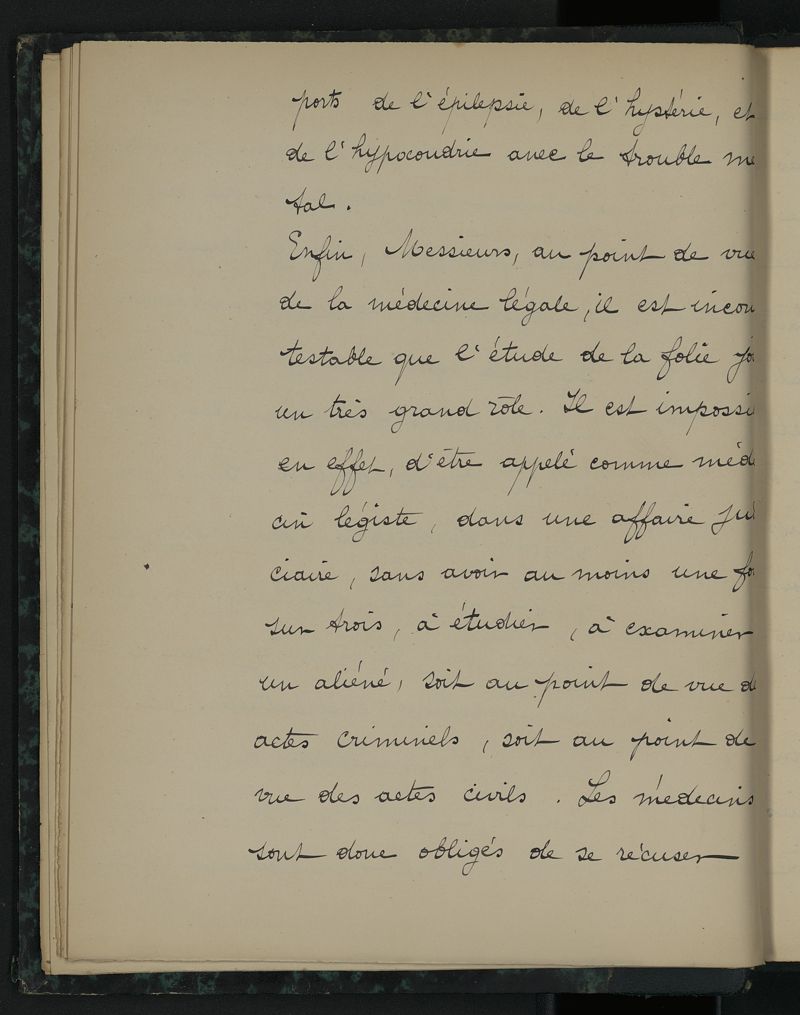 ports de l'épilepsie, de l'hystérie, et
de l'hypocondrie avec le trouble me
tal.
Enfin, Messieurs, au point de vue
de la médecine légale, il est incon
testable que l'étude de la folie jo
un très grand rôle. Il est impossi
en effet, d'être appelé comme méde
cin légiste, dans une affaire judi
ciaire, sans avoir au moins une fo
sur trois, à étudier, à examiner
un aliéné, soit au point de vue d
actes criminels, soit au point de
vue des actes civils. Les médecins
sont donc obligés de se récuser